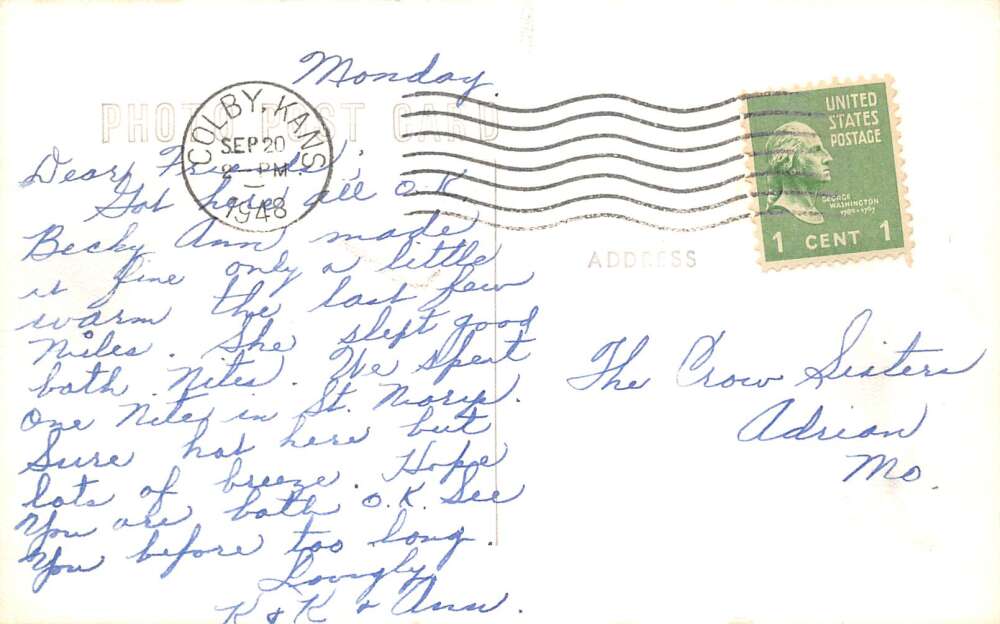 Monday.
PHOTO POST CARD
COLBY, KANS.
SEP 20
PM
1948
UNITED
STATES
POSTAGE
GEORGE
WASHINGTON
1789-1797
1 CENT 1
ADDRESS
Dear Friends:
Got here all O.K.
Becky Ann made
it fine only a little
warm the last few
Miles. She slept good
both Nites. We spent
One Nite in St. Marys.
Sure hot here but
lots of breeze. Hope
You are both O.K. See
You before too long.
Lovingly
K & K & Ann.
The Crow Sisters
Adrian
Mo.